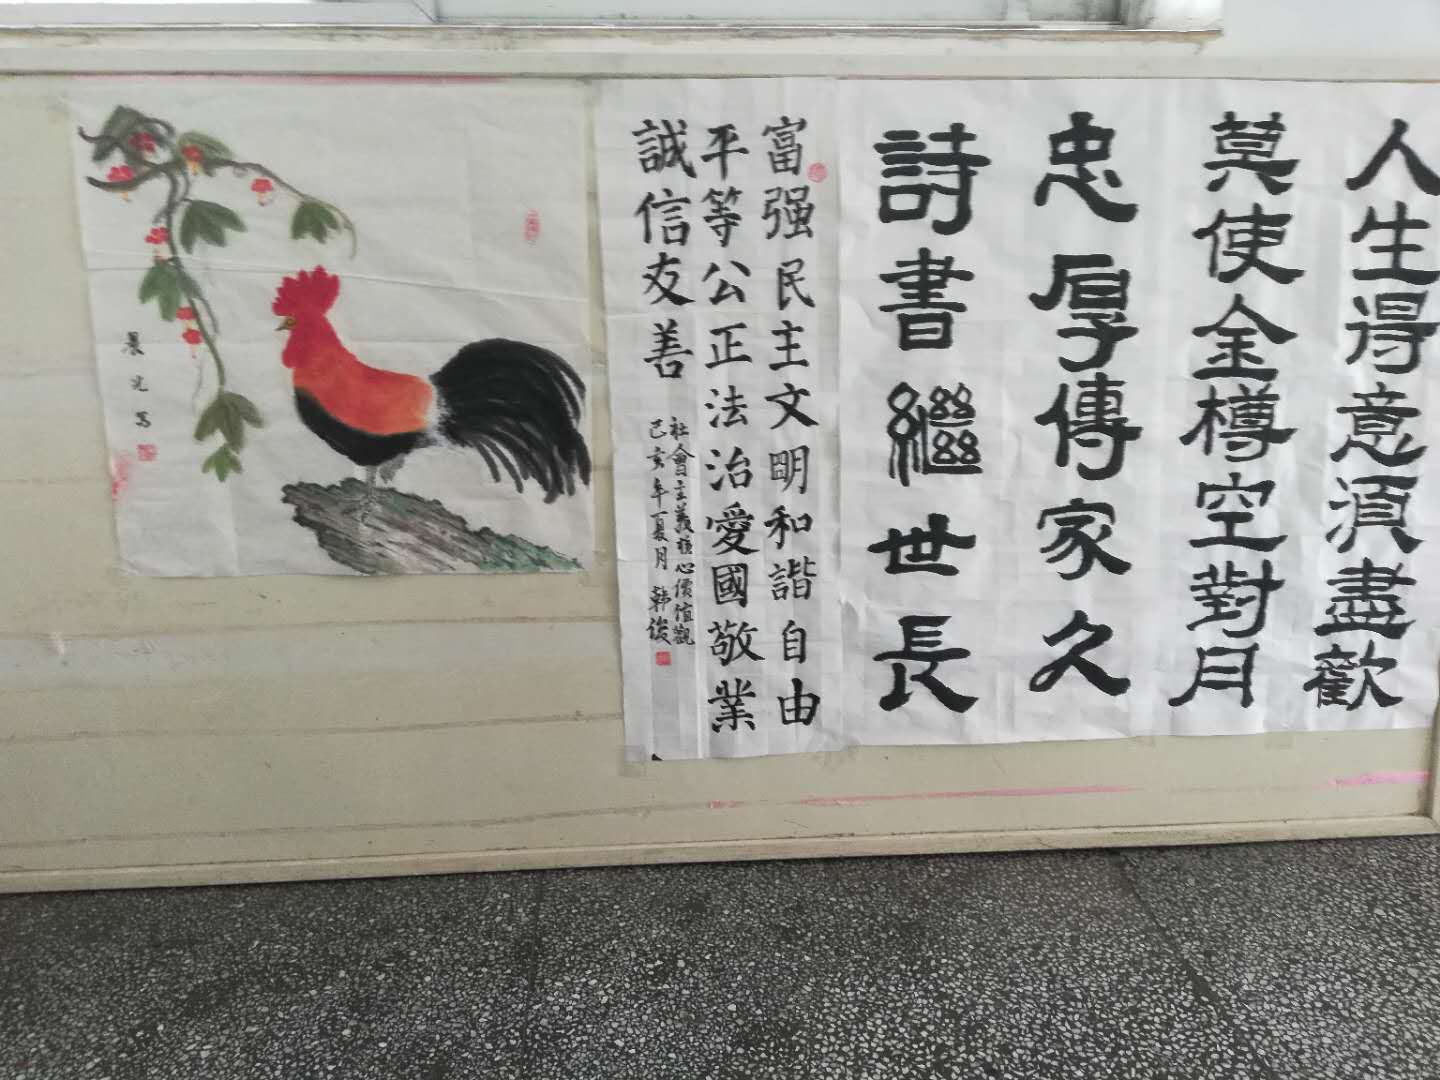 人生得意須盡歡
莫使金樽空對月
忠厚傳家久
詩書繼世長
富强民主文明和諧自由
平等公正法治愛國敬業
誠信友善
社會主義核心價值觀
己亥年夏月 韩俊
晨光写